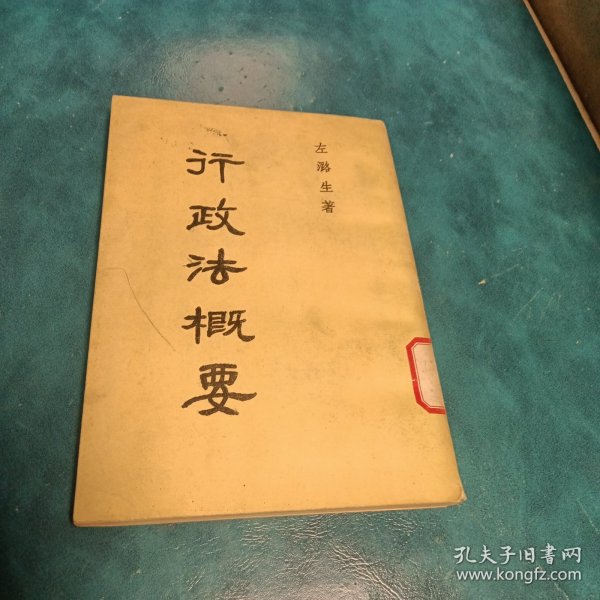 左潞生著
行政法概要
孔夫子旧书网
www.kongfz.com